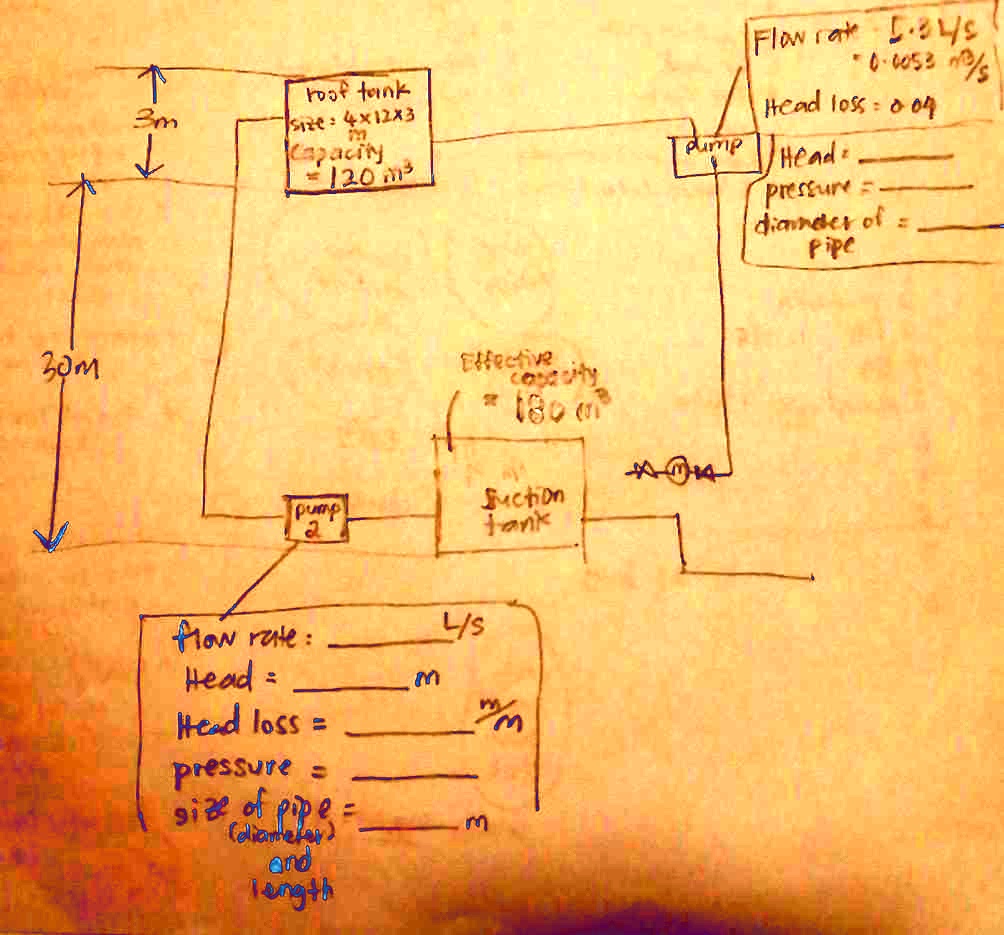 Flow rate = 5.3 L/S
= 0.0053 m³/s
Head loss = 0.04
roof tank
size: 4x12x3
m
Capacity
= 120 m³
3m
pump
Head = ______
pressure = ______
diameter of = ______
pipe
30m
Effective
capacity
= 180 m³
M
suction
tank
pump
2
flow rate: ______ L/S
Head = ______ m
Head loss = ______ m/m
pressure = ______
size of pipe = ______ m
(diameter)
and
length